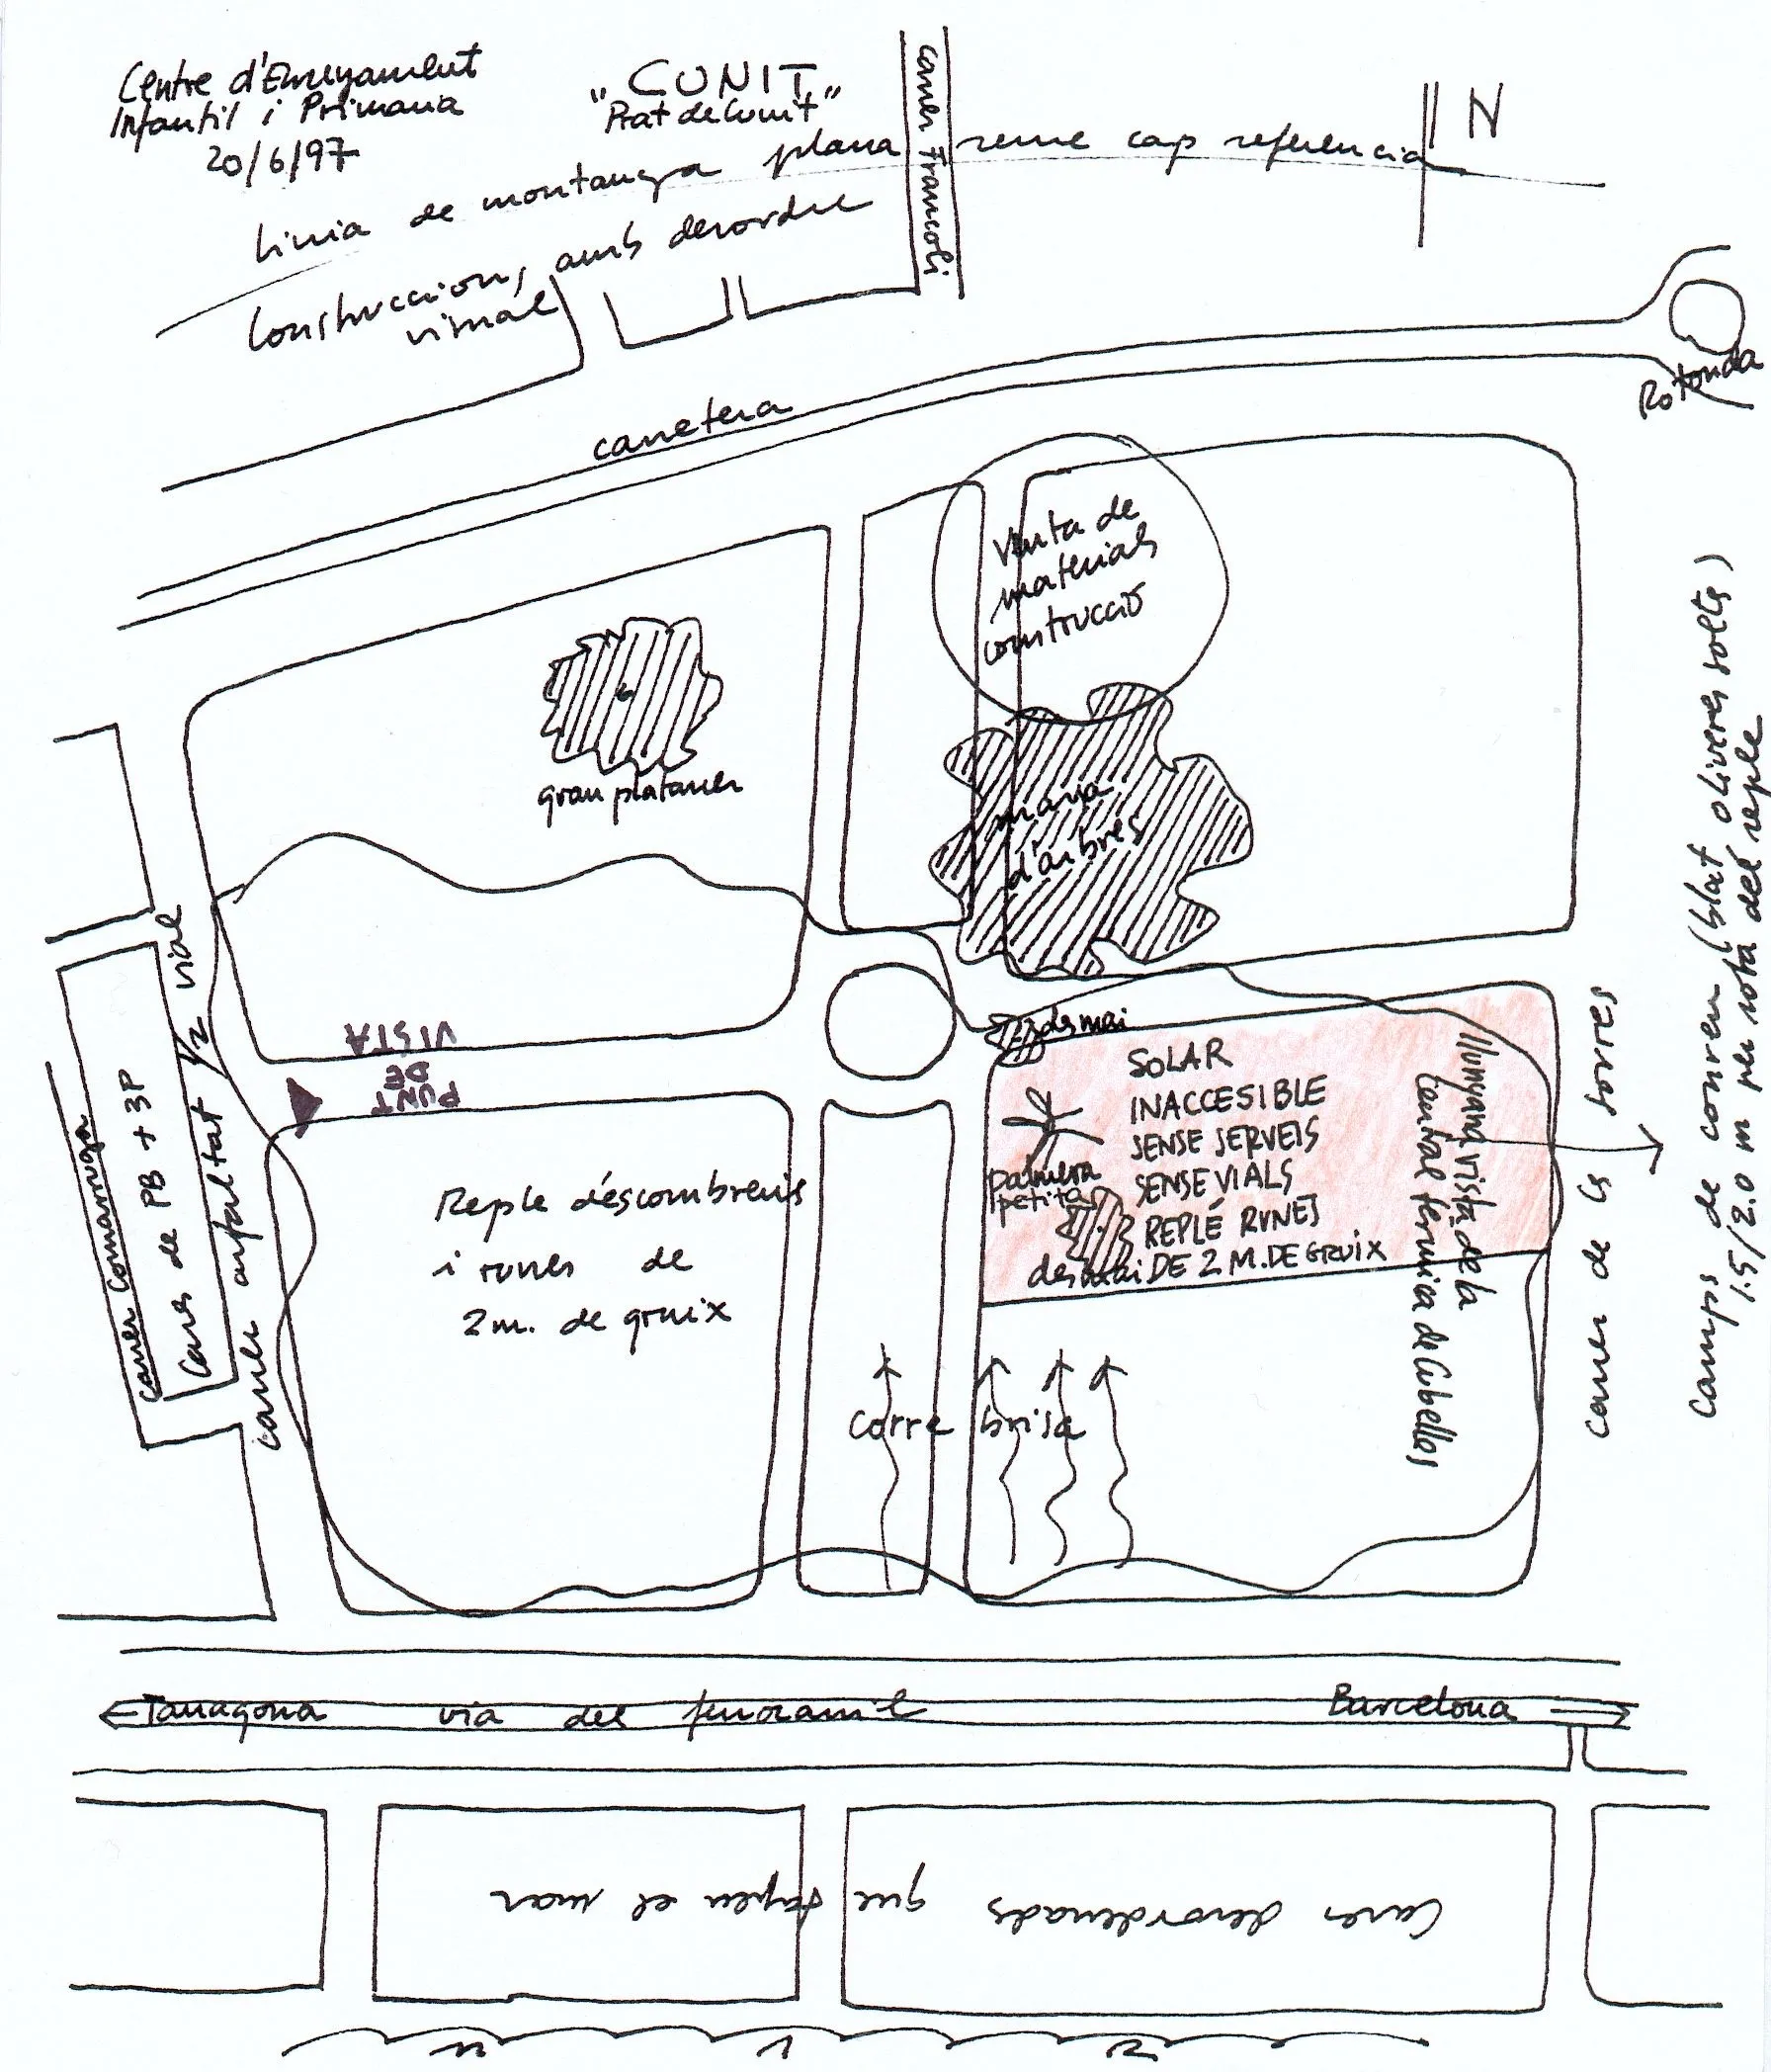 Centre d'Ensenyament
Infantil i Primaria
20/6/97
"CUNIT
Prat de Cunit"
carrer Francolí
N
linia de montanya plana sense cap referencia
Construccions, amb desordre
visual
Rotonda
carretera
Venta de
materials
construcció
gran plataner
massa
d'arbres
desmai
PUNT
DE
VISTA
SOLAR
INACCESIBLE
SENSE SERVEIS
SENSE VIALS
REPLÉ RUNES
DE 2 M. DE GRUIX
palmera
petita
desmai
llunyana vista de la
central termica de Cubelles
carrer de les torres
Camps de conreu (blat oliveres solts)
1.5/2.0 m per sota del reple
carrer Comarruga
Cases de PB + 3P
carrer asfaltat 1/2 vial
Reple d'escombreris
i runes de
2m. de gruix
corre brisa
Tarragona via del ferrocarril Barcelona
Cases desordenades que tapen el mar